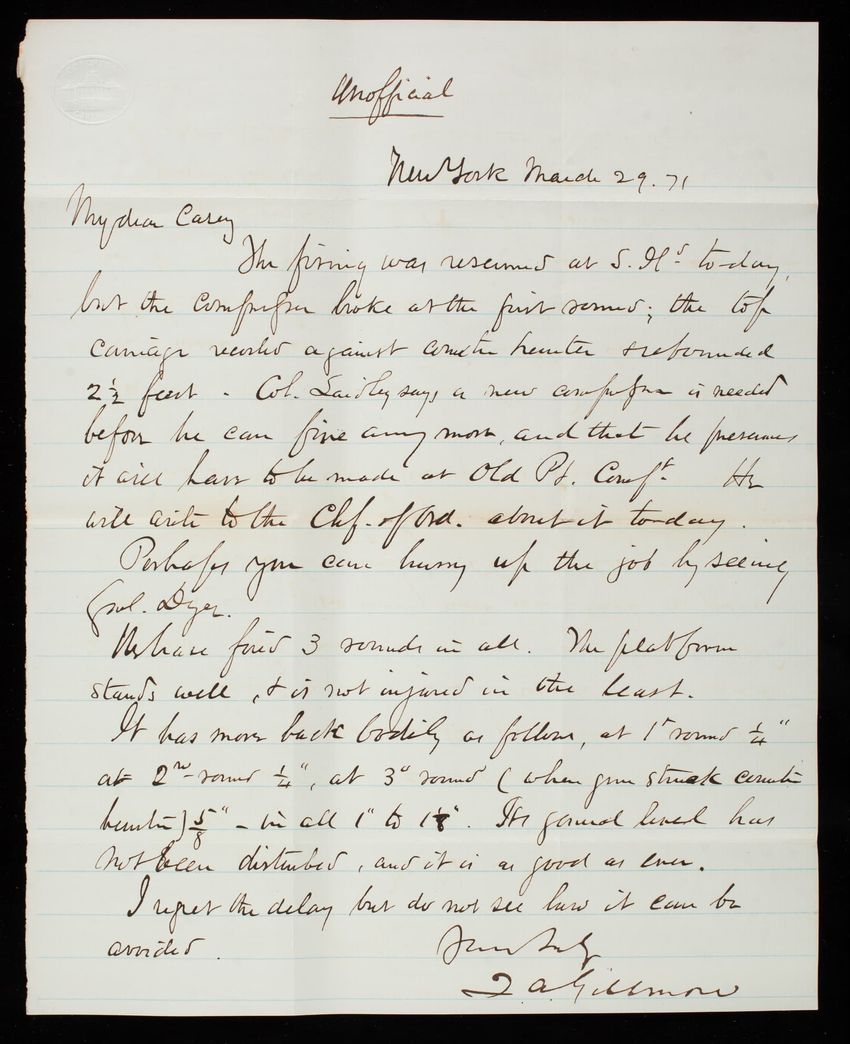 Unofficial
New York March 29. 71
My dear Casey
The firing was resumed at S. Hd to-day,
but the compressor broke at the first round; the top
carriage recoiled against counter heurter & rebounded
2 1/2 feet - Col. Laidley says a new compressor is needed
before he can fire any more, and that he presumes
it will have to be made at Old Pt. Comft. He
will write to the Chf. of Ord. about it to-day.
Perhaps you can hurry up the job by seeing
Genl. Dyer.
We have fired 3 rounds in all. The platform
stands well, & is not injured in the least.
It has moved back bodily as follows, at 1st round 1/4"
at 2nd round 1/4", at 3d round (when gun struck counter
heurter) 5/8" - in all 1" to 1 1/8". Its general level has
not been disturbed, and it is as good as ever.
I regret the delay but do not see how it can be
avoided.
Yours truly
Q A Gillmore